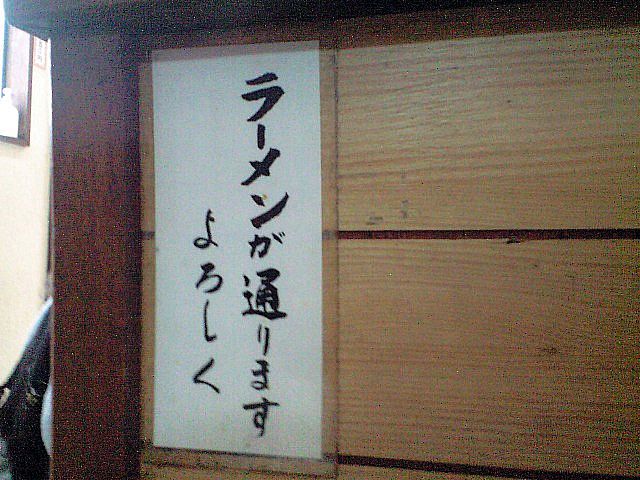 ラーメンが通ります
よろしく